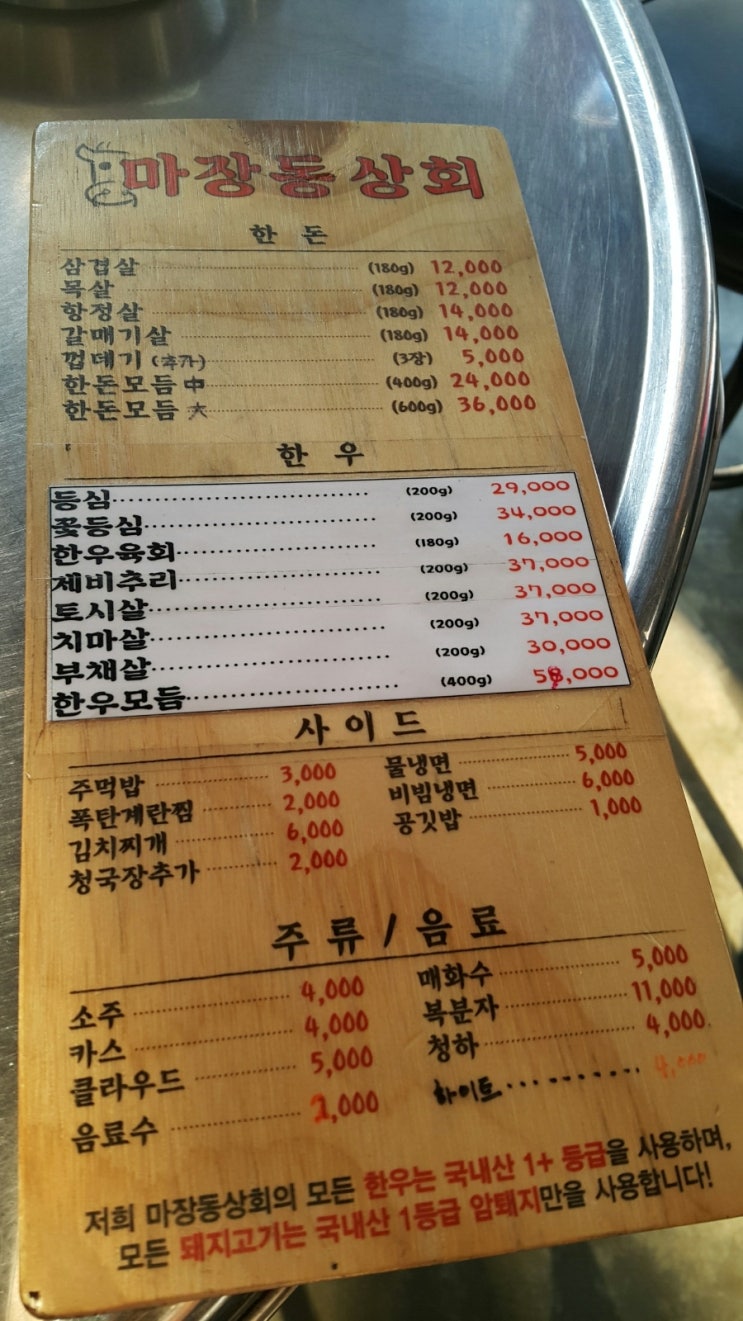 마장동상회
한돈
삼겹살 (180g) 12,000
목살 (180g) 12,000
항정살 (180g) 14,000
갈매기살 (180g) 14,000
껍데기 (추가) (3장) 5,000
한돈모듬 中 (400g) 24,000
한돈모듬 大 (600g) 36,000
한우
등심 (200g) 29,000
꽃등심 (200g) 34,000
한우육회 (180g) 16,000
제비추리 (200g) 37,000
토시살 (200g) 37,000
치마살 (200g) 37,000
부채살 (200g) 30,000
한우모듬 (400g)
사이드
주먹밥 3,000
폭탄계란찜 2,000
김치찌개 6,000
청국장추가 2,000
물냉면 5,000
비빔냉면 6,000
공깃밥 1,000
주류/음료
소주 4,000
카스 4,000
클라우드 5,000
음료수 2,000
매화수 5,000
복분자 11,000
청하 4,000
하이트 4,000
저희 마장동상회의 모든 한우는 국내산 1+ 등급을 사용하며,
모든 돼지고기는 국내산 1등급 암퇘지만을 사용합니다!